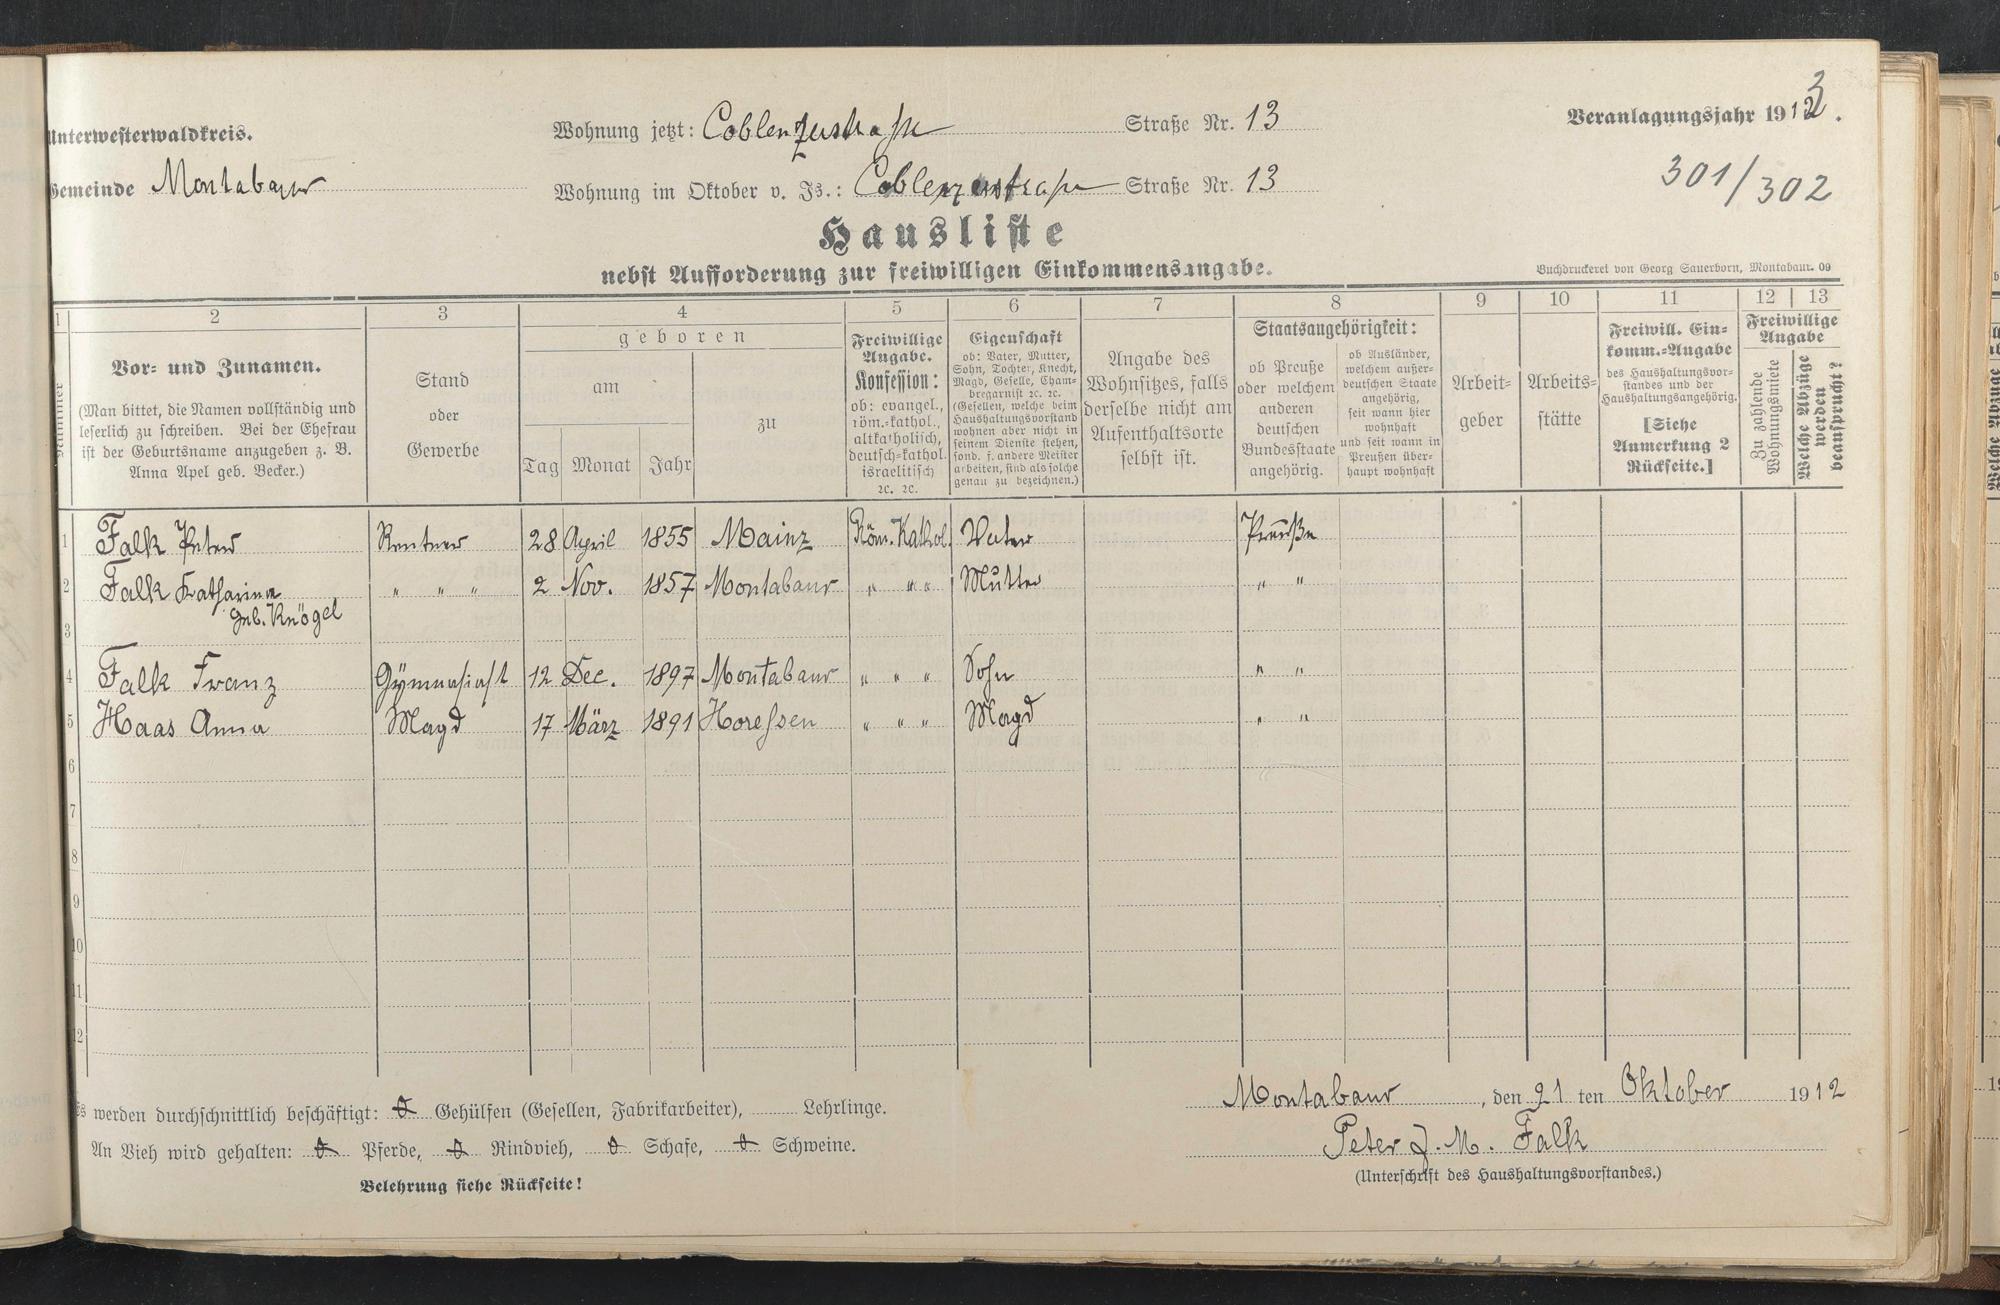 Unterwesterwaldkreis.
Gemeinde Montabaur
Wohnung jetzt: Coblenzerstraße Straße Nr. 13
Wohnung im Oktober v. Js.: Coblenzerstraße Straße Nr. 13
Veranlagungsjahr 1913.
301/302
Hausliste
nebst Aufforderung zur freiwilligen Einkommensangabe.
Buchdruckerei von Georg Sauerborn, Montabaur. 09
1 2 3 4 5 6 7 8 9 10 11 12 13
Nummer
Vor- und Zunamen.
(Man bittet, die Namen vollständig und
leserlich zu schreiben. Bei der Ehefrau
ist der Geburtsname anzugeben z. B.
Anna Apel geb. Becker.)
Stand
oder
Gewerbe
geboren
am
zu
Tag Monat Jahr
Freiwillige
Angabe.
Konfession:
ob: evangel.,
röm.-kathol.,
altkatholisch,
deutsch-kathol.
israelitisch
2c. 2c.
Eigenschaft
ob: Vater, Mutter,
Sohn, Tochter, Knecht,
Magd, Geselle, Cham-
bregarnist 2c. 2c.
(Gesellen, welche beim
Haushaltungsvorstand
wohnen aber nicht in
seinem Dienste stehen,
sond. f. andere Meister
arbeiten, sind als solche
genau zu bezeichnen.)
Angabe des
Wohnsitzes, falls
derselbe nicht am
Aufenthaltsorte
selbst ist.
Staatsangehörigkeit:
ob Preuße
oder welchem
anderen
deutschen
Bundesstaate
angehörig.
ob Ausländer,
welchem außer-
deutschen Staate
angehörig,
seit wann hier
wohnhaft
und seit wann in
Preußen über-
haupt wohnhaft
Arbeit-
geber
Arbeits-
stätte
Freiwill. Ein-
komm.-Angabe
des Haushaltungsvor-
standes und der
Haushaltungsangehörig.
[Siehe
Anmerkung 2
Rückseite.]
Freiwillige
Angabe
Zu zahlende
Wohnungsmiete
Welche Abzüge
werden
beansprucht?
1 Falk Peter Rentner 28 April 1855 Mainz Röm. Kathol. Vater Preuße
2 Falk Katharina " " " 2 Nov. 1857 Montabaur " " " Mutter " "
geb. Knögel
3
4 Falk Franz Gymnasiast 12 Dec. 1897 Montabaur " " " Sohn " "
5 Haas Anna Magd 17 März 1891 Horessen " " " Magd " "
6
7
8
9
10
11
12
Es werden durchschnittlich beschäftigt: 0 Gehülfen (Gesellen, Fabrikarbeiter), Lehrlinge.
An Vieh wird gehalten: 0 Pferde, 0 Rindvieh, 0 Schafe, 0 Schweine.
Belehrung siehe Rückseite!
Montabaur, den 21 ten Oktober 1912
Peter J. M. Falk
(Unterschrift des Haushaltungsvorstandes.)